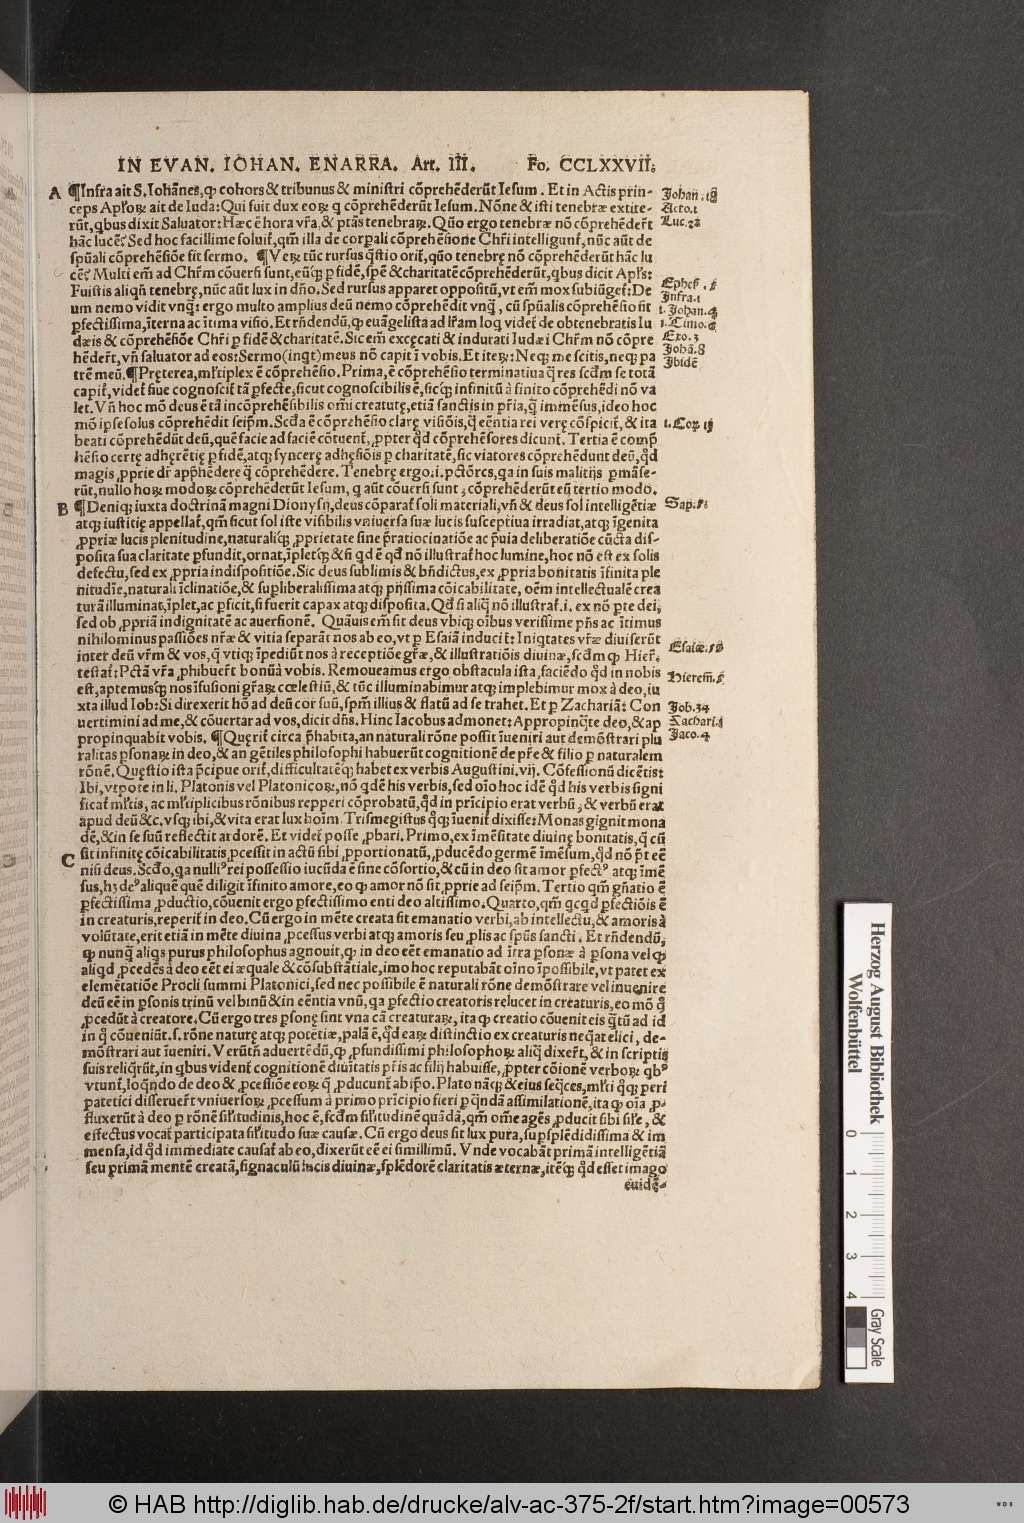 IN EVAN. IOHAN. ENARRA. Art. III. Fo. CCLXXVII.
A ¶Infra ait S. Iohānes, ꝙ cohors & tribunus & ministri cōprehēderūt Iesum. Et in Actis prin- Johan. 18
ceps Apl'oꝝ ait de Iuda: Qui fuit dux eoꝝ q cōprehēderūt Iesum. Nōne & isti tenebræ extite- Acto. 1
rūt, qbus dixit Saluator: Hæc ē hora vr̄a, & ptās tenebraꝝ. Qūo ergo tenebræ nō cōprehēdert̄ Luc. 22
hāc lucē? Sed hoc facillime soluit̄, qm̄ illa de corpali cōprehēsione Chr̄i intelligunt̄, nūc aūt de
spūali cōprehēsiōe fit sermo. ¶Veꝝ tūc rursus q̄stio orit̄, qūo tenebrę nō cōprehēderūt hāc lu
cē? Multi em̄ ad Chr̄m cōuersi sunt, eūq; p fidē, spē & charitatē cōprehēderūt, qbus dicit Apl's:
Fuistis aliqn̄ tenebrę, nūc aūt lux in dn̄o. Sed rursus apparet oppositū, vt em̄ mox subiūget̄: De Ephes. 5
um nemo vidit vnq̄: ergo multo amplius deū nemo cōprehēdit vnq̄, cū spūalis cōprehēsio sit Infra. 1
pfectissima, īterna ac ītima visio. Et rn̄dendū, ꝙ euāgelista ad lr̄am loq videt̄ de obtenebratis Iu 1. Johan. 4
dæis & cōprehēsiōe Chr̄i p fidē & charitatē. Sic em̄ excęcati & indurati Iudæi Chr̄m nō cōpre 1. Timo. 6
hēdert̄, vn̄ saluator ad eos: Sermo (inqt) meus nō capit ī vobis. Et iteꝝ: Neq; me scitis, neq; pa Exo. 3
trē meū. ¶Pręterea, ml'tiplex ē cōprehēsio. Prima, ē cōprehēsio terminatiua q̄ res scdm se totā Johā. 8
capit̄, videt̄ siue cognoscit̄ tā pfecte, sicut cognoscibilis ē, sicq; infinitū à finito cōprehēdi nō va Ibidē
let. Vn̄ hoc mō deus ē tā incōprehēsibilis om̄i creaturę, etiā sanctis in pr̄ia, q̄ immēsus, ideo hoc
mō ipse solus cōprehēdit seipm̄. Scd̄a ē cōprehēsio clarę visiōis, q̄ eēntia rei verę cōspicit̄, & ita 1. Coꝝ. 13
beati cōprehēdūt deū, quē facie ad faciē cōtuent̄, ꝓpter qd̄ cōprehēsores dicunt̄. Tertia ē comp̄
hēsio certę adhęrētię p fidē, atq; syncerę adhęsiōis p charitatē, sic viatores cōprehēdunt deū, qd̄
magis ꝓprie dr̄ app̄hēdere q̄ cōprehēdere. Tenebrę ergo .i. pctōres, qa in suis malitijs pmāse-
rūt, nullo hoꝝ modoꝝ cōprehēderūt Iesum, q aūt cōuersi sunt, cōprehēderūt eū tertio modo.
B ¶Deniq; iuxta doctrinā magni Dionysij, deus cōparat̄ soli materiali, vn̄ & deus sol intelligētiæ Sap. 5
atq; iustitię appellat̄, qm̄ sicut sol iste visibilis vniuersa suæ lucis susceptiua irradiat, atq; īgenita
ꝓpriæ lucis plenitudine, naturaliq; ꝓprietate sine p̄ratiocinatiōe ac p̄uia deliberatiōe cūcta dis-
posita sua claritate pfundit, ornat, īpletq; & si qd ē qd̄ nō illustrat̄ hoc lumine, hoc nō est ex solis
defectu, sed ex ꝓpria indispositiōe. Sic deus sublimis & bn̄dictus, ex ꝓpria bonitatis īfinita ple
nitudīe, naturali īclinatiōe, & supliberalissima atq; pijssima cōicabilitate, oēm intellectualē crea
turā illuminat, īplet, ac pficit, si fuerit capax atq; disposita. Qd̄ si aliq̄ nō illustrat̄ .i. ex nō pte dei,
sed ob ꝓpriā indignitatē ac auersionē. Quāuis em̄ sit deus vbiq; oībus verissime pn̄s ac ītimus
nihilominus passiōes nr̄æ & vitia separāt nos ab eo, vt p Esaiā inducit̄: Iniqtates vr̄æ diuiserūt
inter deū vr̄m & vos, q̄ vtiq; īpediūt nos à receptiōe gr̄æ, & illustratiōis diuinæ, scd̄m ꝙ Hier̄. Esaiæ. 59
testat̄: Pctā vr̄a ꝓhibuert̄ bonū à vobis. Remoueamus ergo obstacula ista, faciēdo qd̄ in nobis
est, aptemusq; nos īfusioni gr̄aꝝ cœlestiū, & tūc illuminabimur atq; implebimur mox à deo, iu Hierem. 5
xta illud Iob: Si direxerit hō ad deū cor suū, spm̄ illius & flatū ad se trahet. Et p Zachariā: Con Job. 34
uertimini ad me, & cōuertar ad vos, dicit dn̄s. Hinc Iacobus admonet: Appropinq̄te deo, & ap Zachari. 1
propinquabit vobis. ¶Quęrit̄ circa p̄habita, an naturali rōne possit īueniri aut demōstrari plu Jaco. 4
ralitas psonaꝝ in deo, & an gētiles philosophi habuerūt cognitionē de pr̄e & filio p naturalem
rōnē. Quęstio ista p̄cipue orit̄, difficultatēq; habet ex verbis Augustini .vij. Cōfessionū dicētis:
Ibi, vtpote in li. Platonis vel Platonicoꝝ, nō qdē his verbis, sed oīo hoc idē qd̄ his verbis signi
ficat̄ ml'tis, ac ml'tiplicibus rōnibus repperi cōprobatū, qd̄ in prīcipio erat verbū, & verbū erat
apud deū &c. vsq; ibi, & vita erat lux hoīm. Trismegistus qq; īuenit̄ dixisse: Monas gignit mona
dē, & in se suū reflectit ardorē. Et videt̄ posse ꝓbari. Primo, ex īmēsitate diuinę bonitatis, q̄ cū
C sit infinitę cōicabilitatis, ꝓcessit in actū sibi ꝓportionatū, ꝓducēdo germē īmēsum, qd̄ nō p̄t eē
nisi deus. Scd̄o, qa nulliꝰ rei possessio iucūda ē sine cōsortio, & cū in deo sit amor pfectꝰ atq; īmē
sus, hꝫ deꝰ aliquē quē diligit īfinito amore, eo ꝙ amor nō sit ꝓprie ad seipm̄. Tertio qm̄ gn̄atio ē
pfectissima ꝓductio, cōuenit ergo pfectissimo enti deo altissimo. Quarto, qm̄ qcqd pfectiōis ē
in creaturis, reperit̄ in deo. Cū ergo in mēte creata fit emanatio verbi, ab intellectu, & amoris à
volūtate, erit etiā in mēte diuina ꝓcessus verbi atq; amoris seu ꝓlis ac spūs sancti. Et rn̄dendū,
ꝙ nunq̄ aliqs purus philosophus agnouit, ꝙ in deo eēt emanatio ad īrra psonæ à psona vel ꝙ
aliqd ꝓcedēs à deo eēt ei æquale & cōsubstātiale, imo hoc reputabāt oīno īpossibile, vt patet ex
elemētatiōe Procli summi Platonici, sed nec possibile ē naturali rōne demōstrare vel inuenire
deū eē in psonis trinū vel binū & in eēntia vnū, qa pfectio creatoris relucet in creaturis, eo mō q̄
ꝓcedūt à creatore. Cū ergo tres psonę sint vna cā creaturaꝝ, ita ꝙ creatio cōuenit eis q̄tū ad id
in q̄ cōueniūt .s. rōne naturę atq; potētiæ, palā ē, qd̄ eaꝝ distinctio ex creaturis neqat elici, de-
mōstrari aut īueniri. Verūtn̄ aduertēdū, ꝙ ꝓfundissimi philosophoꝝ aliq̄ dixert̄, & in scriptis
suis reliqrūt, in qbus vident̄ cognitionē diuītatis pr̄is ac filij habuisse, ꝓpter cōionē verboꝝ qbꝰ
vtunt̄, loqndo de deo & ꝓcessiōe eoꝝ q̄ ꝓducunt̄ ab ipo. Plato nāq; & eius seq̄ces, ml'ti qq; peri
patetici disseruert̄ vniuersoꝝ ꝓcessum à primo prīcipio fieri p qndā assimilationē, ita ꝙ oīa ꝓ-
fluxerūt à deo p rōnē sil'itudinis, hoc ē, scd̄m sil'itudinē quādā, qm̄ om̄e agēs ꝓducit sibi sil'e, &
effectus vocat̄ participata sil'itudo suæ causæ. Cū ergo deus sit lux pura, supsplēdidissima & im
mensa, id qd̄ immediate causat̄ ab eo, dixerūt eē ei simillimū. Vnde vocabāt primā intelligētiā
seu primā mentē creatā, signaculū lucis diuinæ, splēdorē claritatis æternæ, itēq; qd̄ esset imago
euidē-
Herzog August Bibliothek
Wolfenbüttel
0 1 2 3 4
Gray Scale
© HAB http://diglib.hab.de/drucke/alv-ac-375-2f/start.htm?image=00573